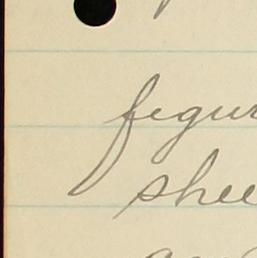 figur
shee